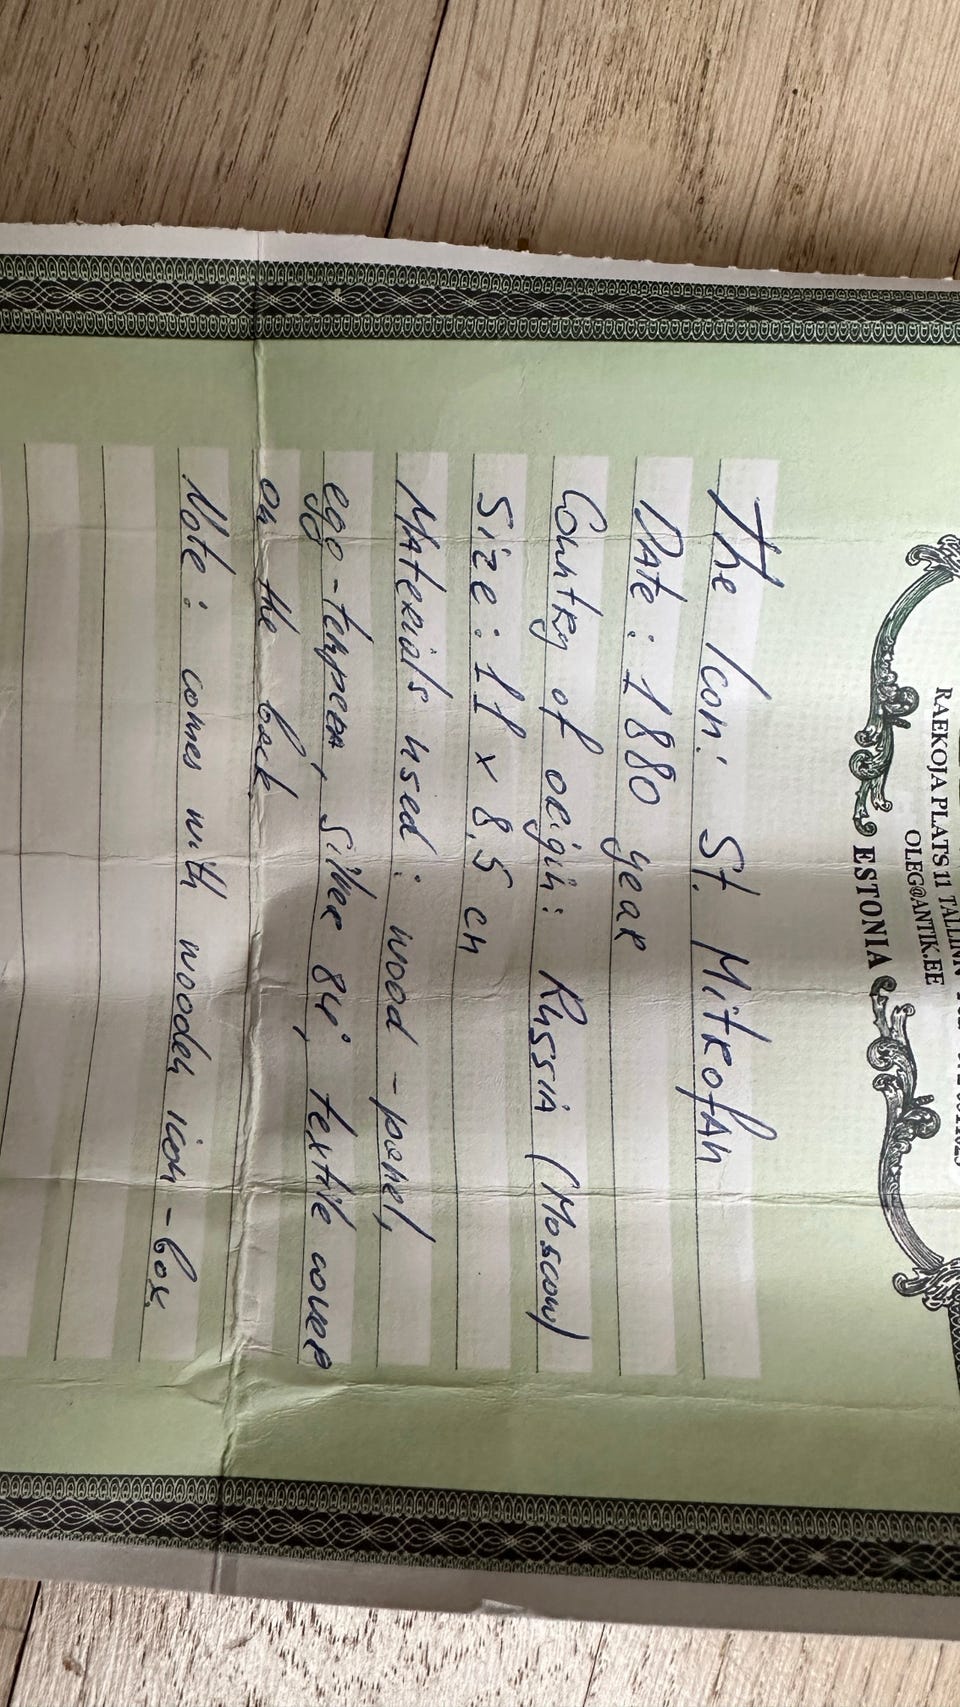 RAEKOJA PLATS 11 TALLINN
OLEG@ANTIK.EE
ESTONIA
The Icon: St. Mitrofan
Date: 1880 year
Country of origin: Russia (Moscow)
Size: 11 x 8,5 cm
Materials used: wood-panel,
egg-tempera, silver 84, textile cover
on the back.
Note: comes with wooden icon-box.